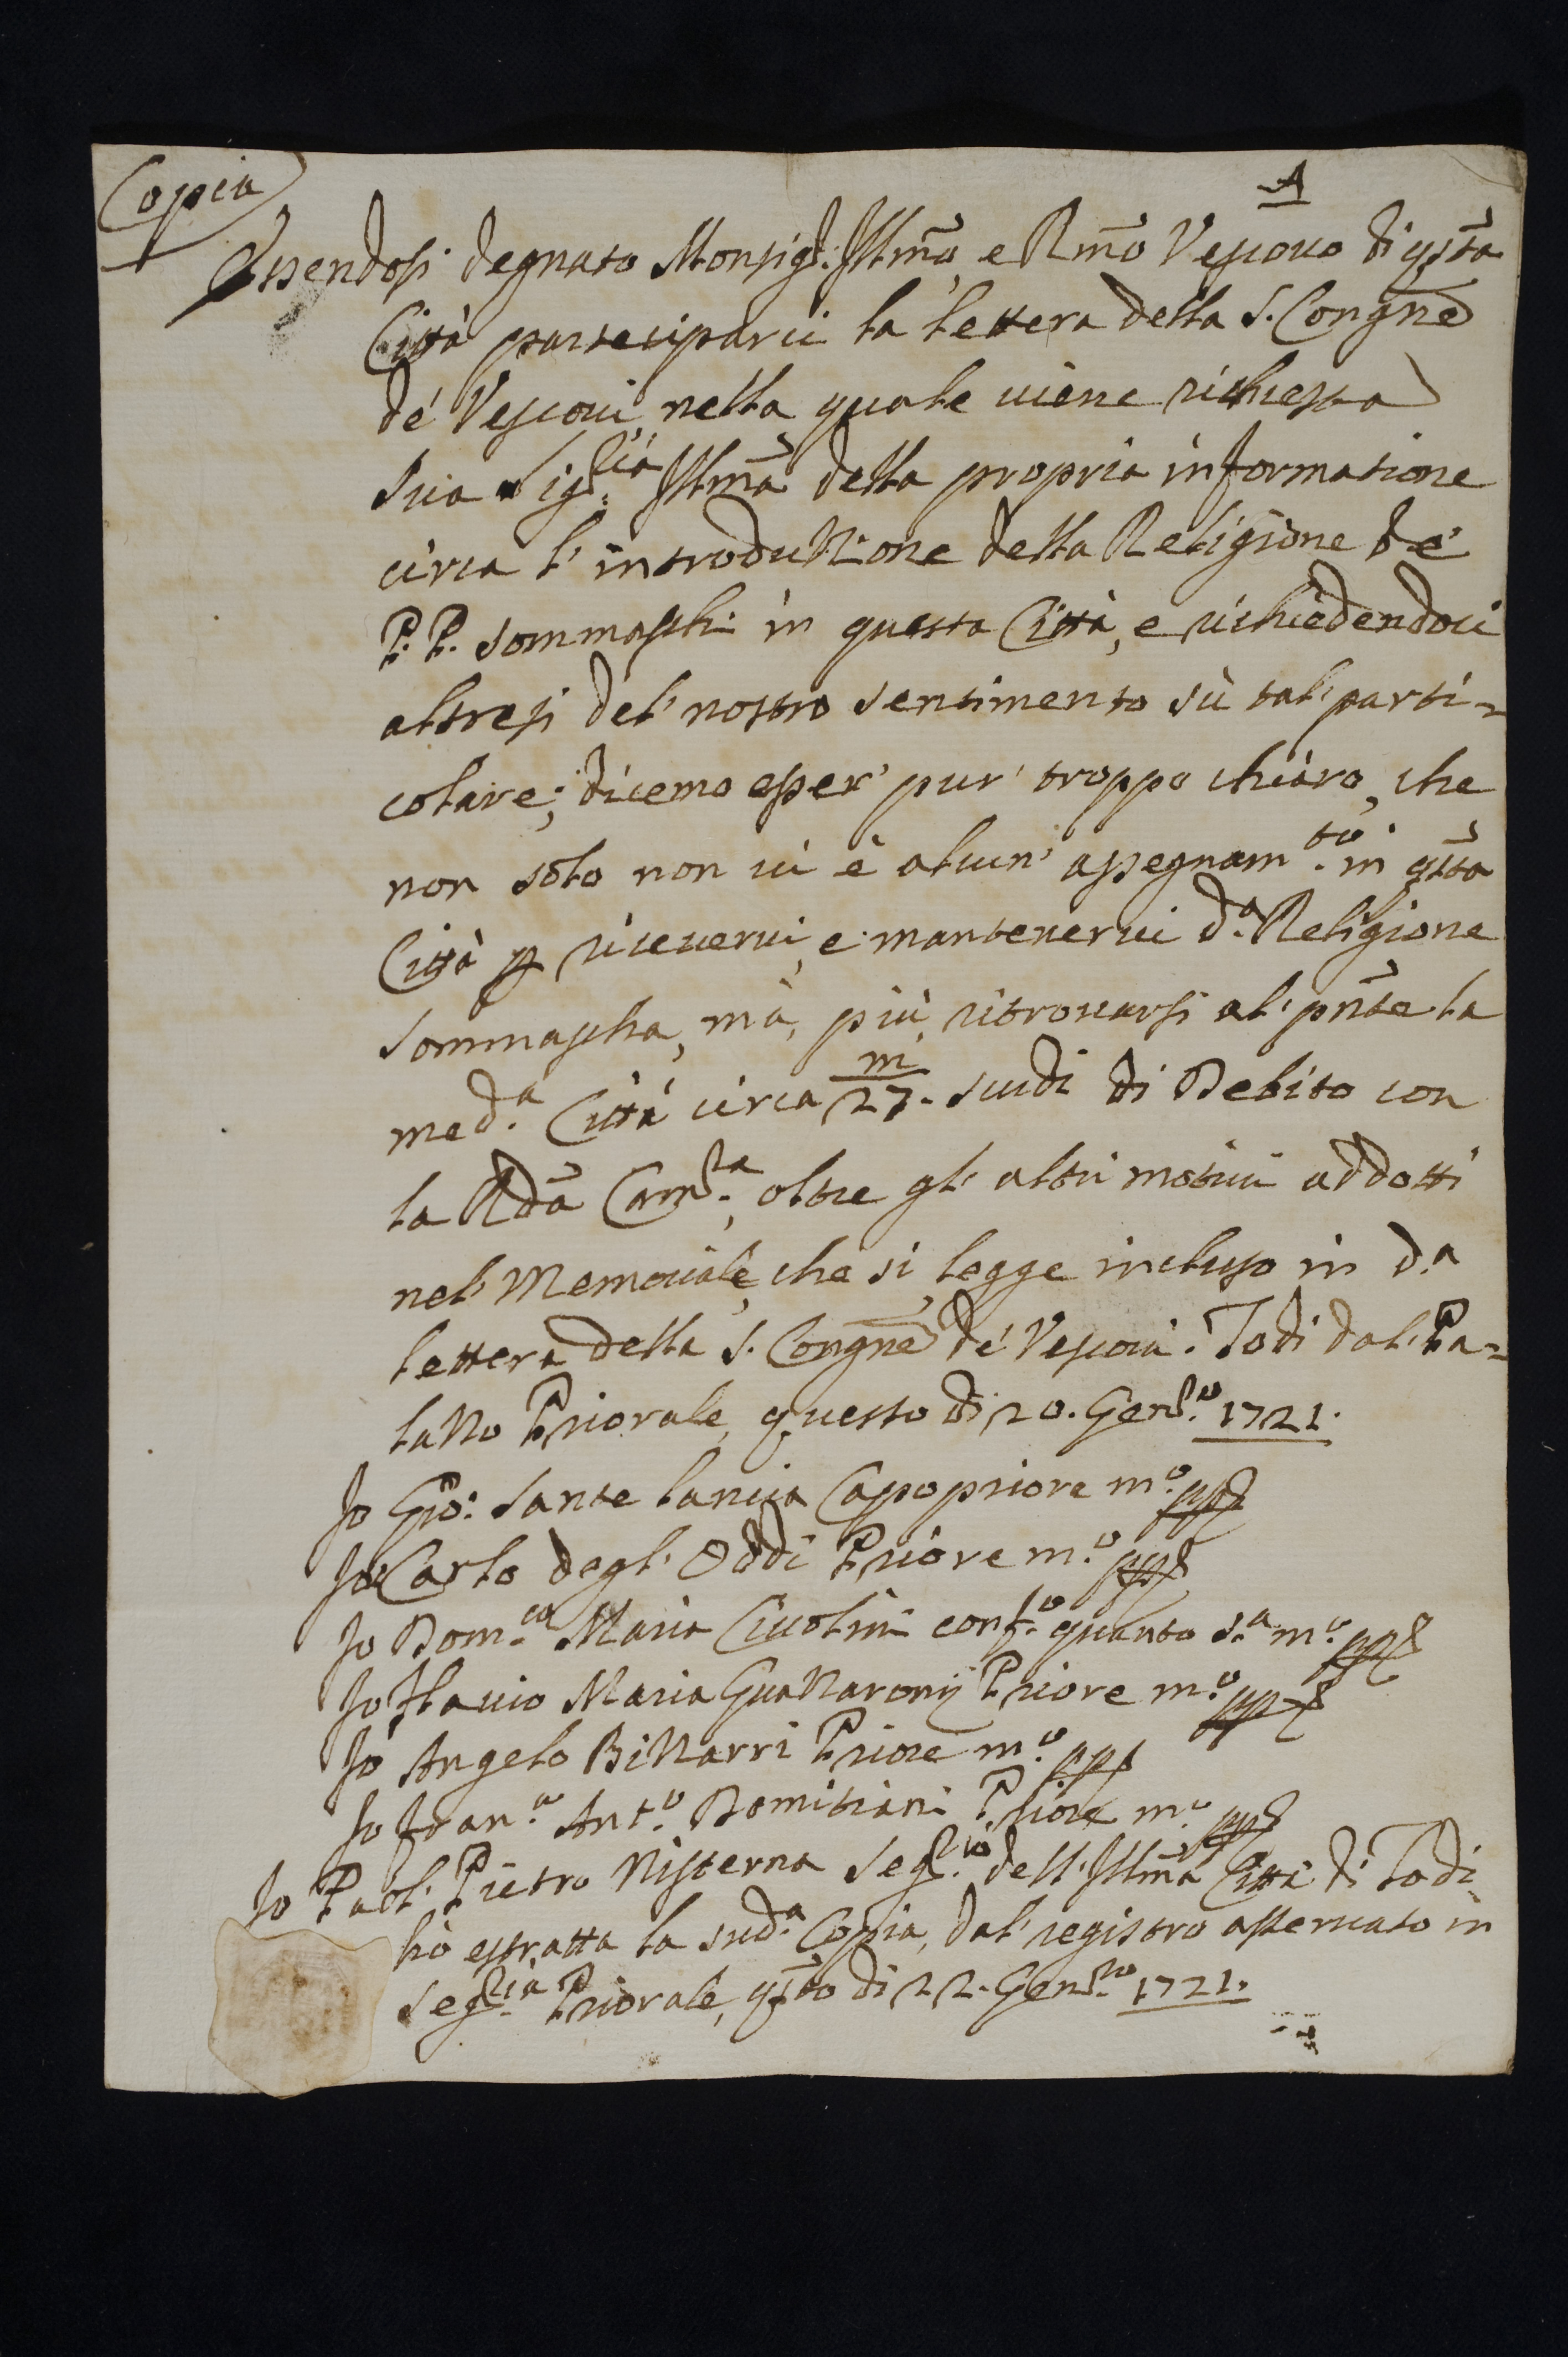 Copia
A
Essendosi degnato Monsig.r Illmo, e Rmo Vescouo di qsta
Città parteciparci la lettera della S. Congne
de' Vescoui, nella quale uiene richiesta
Sua Sig.ria Illma della propria informatione
circa l'introduttione della Religione de'
P.P. Sommaschi in questa Città, e richiedendoci
altresi del' nostro sentimento sù tal' parti=
colare; dicemo esser' pur' troppo chiaro, che
non solo non ui è alcun' assegnam.to in qsta
Città p riceuerui, e mantenerui d.a Religione
Sommascha, mà, più ritrouarsi al' pnte la
med.a Città circa m/27. scudi di Debito con
la Rda Cam.ra, oltre gl' altri motiui addotti
nel' Memoriale, che si legge incluso in d.a
lettera della S. Congne de' Vescoui. Todi dal' Pa=
lazzo Priorale, questo di 20. Gen.ro 1721.
Io Gio: Sante Lancia Capopriore m.o pp
Io Carlo degl' Oddi Priore m.o pp
Io Dom.co Maria Ciuolini conf.o quanto s.a m.o pp
Io Flauio Maria Guazzaronij Priore m.o pp
Io Angelo Bizzarri Priore m.o pp
Io Fran.o Ant.o Domitiani Priore m.o pp
Io Paol' Pietro Nisterna Seg.rio dell' Illma Città di Todi
hò estratta la sud.a Copia, dal' registro asseruato in
Seg.ria Priorale, qsto di 22. Gen.ro 1721.